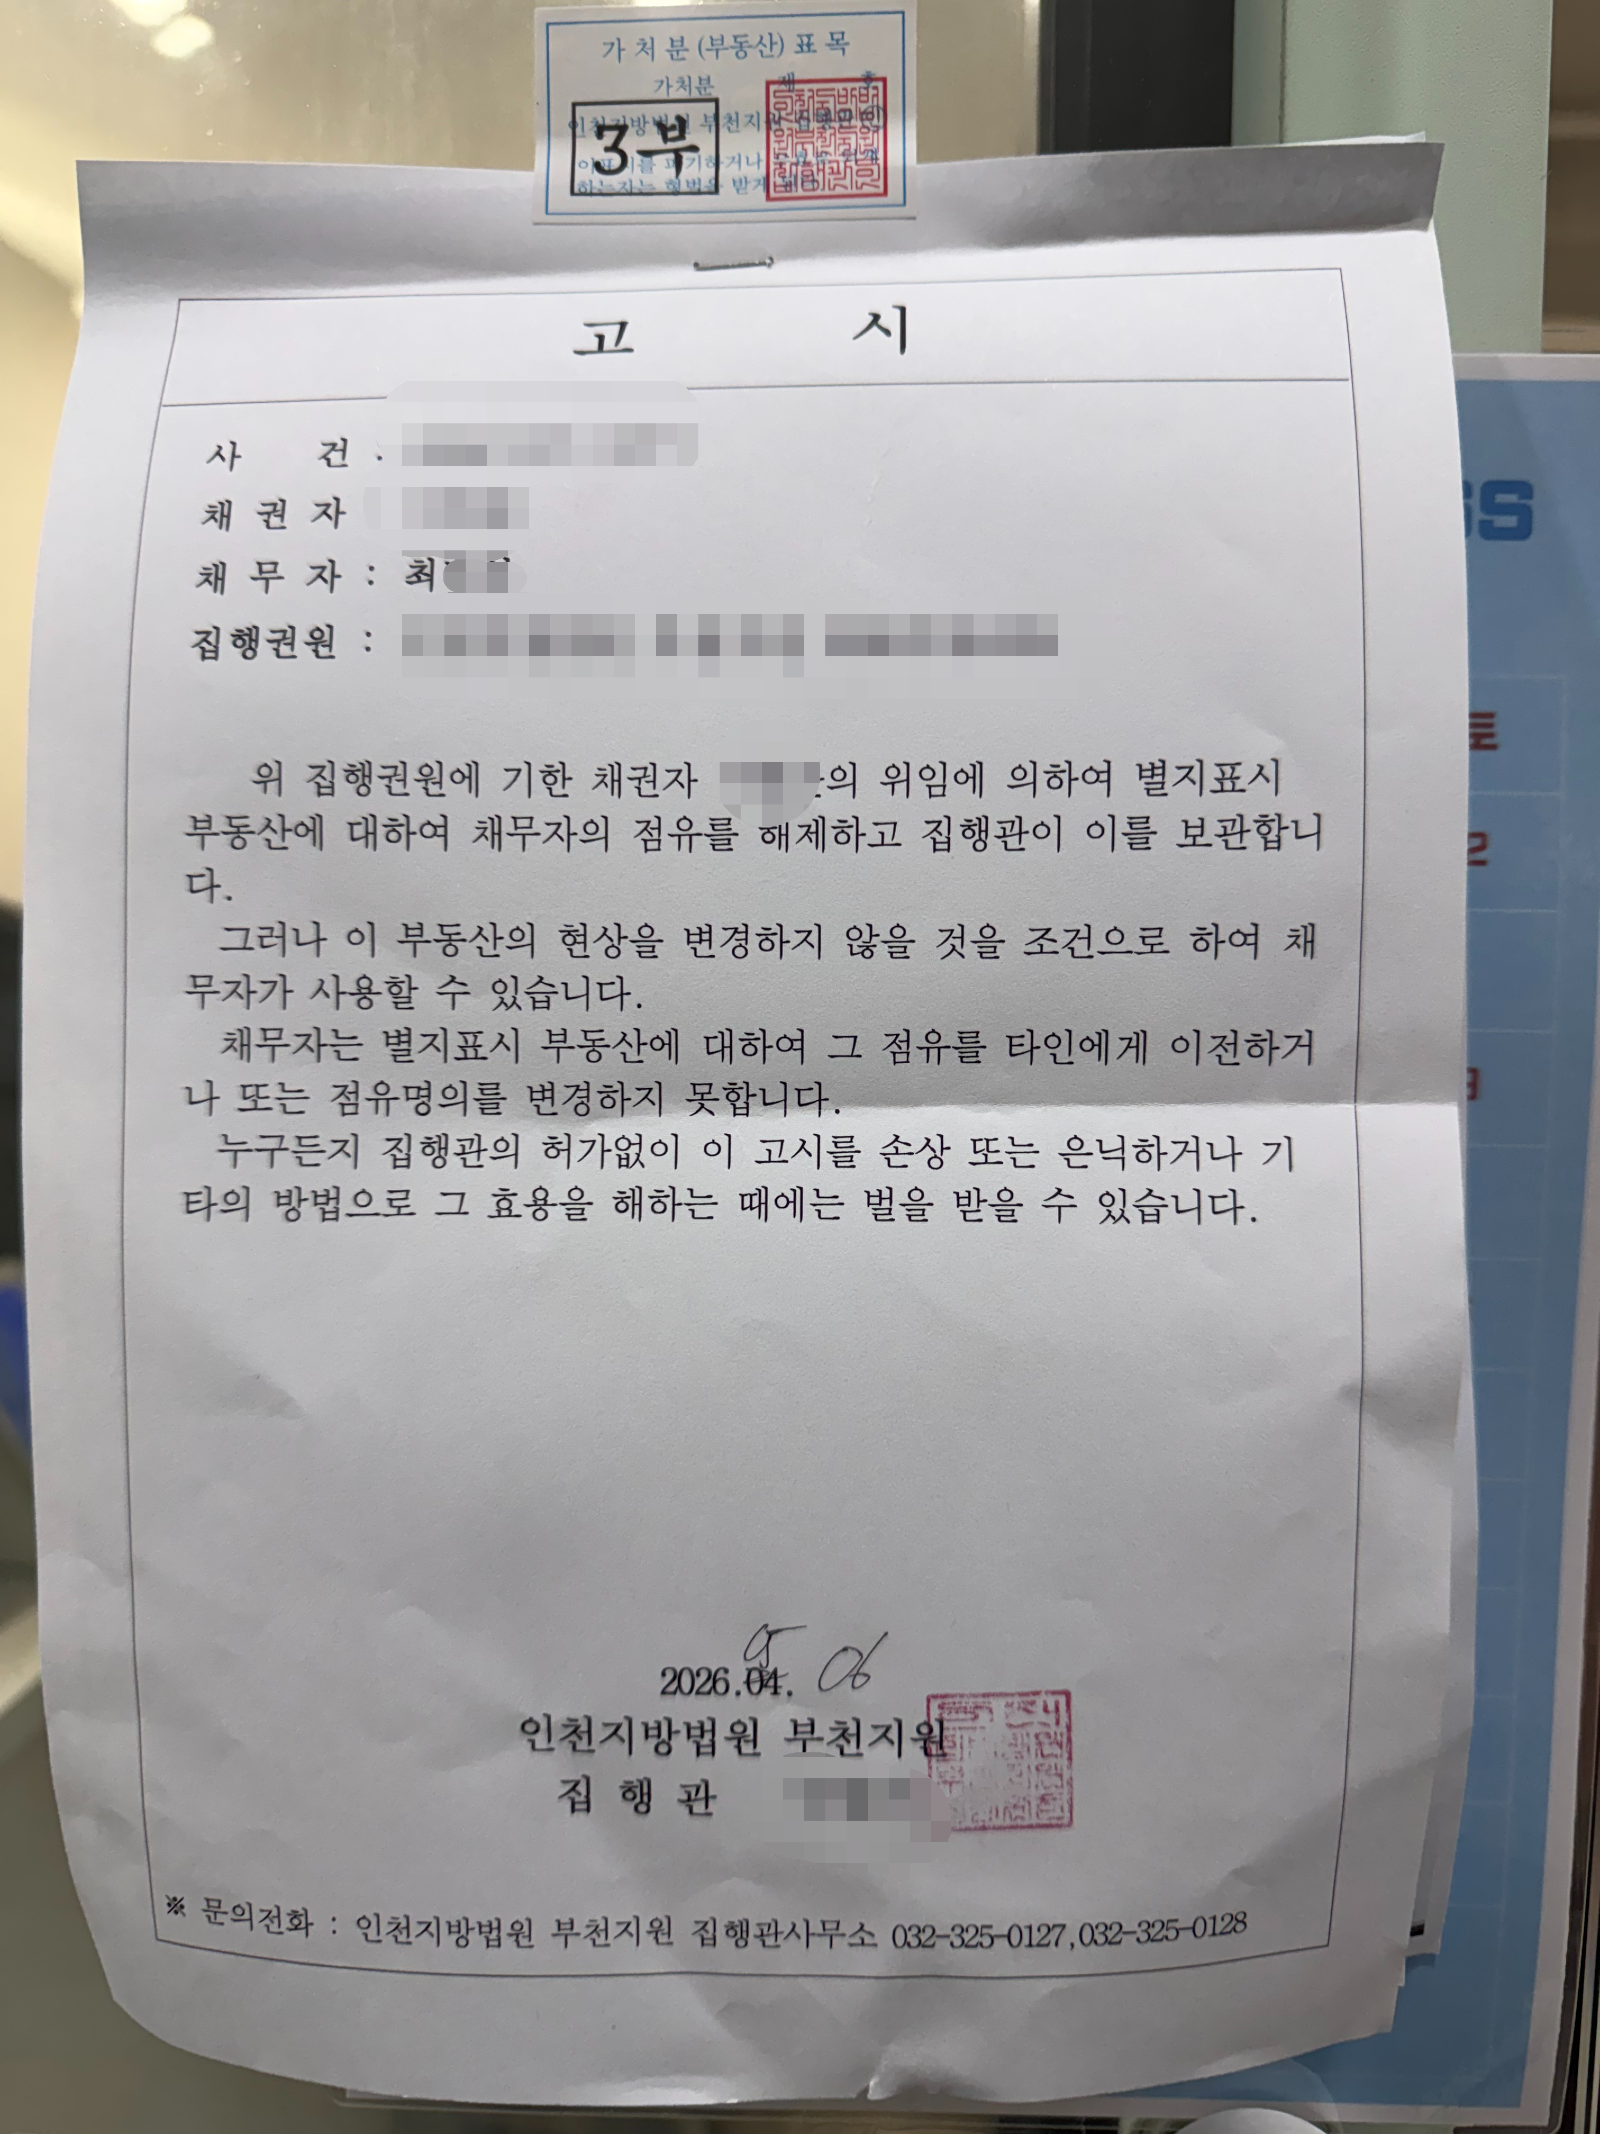 가처분(부동산)표목
가처분 제 호
인천지방법원 부천지원
3부
고 시
사 건 :
채 권 자
채 무 자 : 최
집행권원 :
위 집행권원에 기한 채권자 의 위임에 의하여 별지표시
부동산에 대하여 채무자의 점유를 해제하고 집행관이 이를 보관합니
다.
그러나 이 부동산의 현상을 변경하지 않을 것을 조건으로 하여 채
무자가 사용할 수 있습니다.
채무자는 별지표시 부동산에 대하여 그 점유를 타인에게 이전하거
나 또는 점유명의를 변경하지 못합니다.
누구든지 집행관의 허가없이 이 고시를 손상 또는 은닉하거나 기
타의 방법으로 그 효용을 해하는 때에는 벌을 받을 수 있습니다.
5
2026.04. 06
인천지방법원 부천지원
집 행 관
※ 문의전화 : 인천지방법원 부천지원 집행관사무소 032-325-0127,032-325-0128
SS
토
2